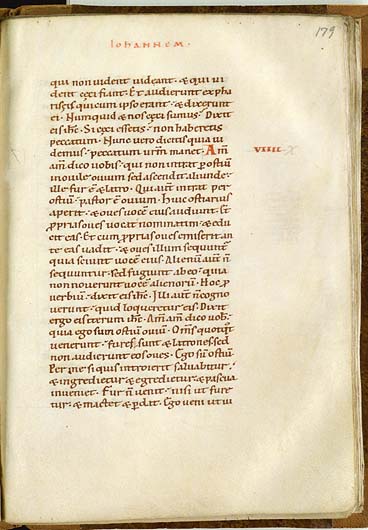 179
Iohannem.
qui non vident videant. & qui vi
dent ceci fiant. Et audierunt ex pha
riseis qui cum ipso erant. & dixerunt
ei. Numquid & nos ceci sumus. Dixit
eis ihc. Si ceci essetis. non haberetis
peccatum. Nunc vero dicitis quia vi
demus. peccatum vrm manet. Am
am dico vobis. qui non intrat p ostiu
in ovile ovium sed ascendit aliunde.
ille fur e & latro. Qui aut intrat per
ostiu. pastor e ovium. Huic ostiarius
aperit. & oves voce eius audiunt. &
pprias oves vocat nominatim. & edu
cit eas. Et cum pprias oves emiserit. an
te eas vadit. & oves illum sequunt.
quia sciunt voce eius. Alienu aut n
sequuntur. sed fugiunt ab eo. quia
non noverunt voce alienorum. Hoc p
verbiu. dixit eis ihc. Illi aut n cogno
verunt. quid loqueretur eis. Dixit
ergo eis iterum ihc. Am am dico vob.
quia ego sum ostiu oviu. Oms quotqt
venerunt. fures sunt & latrones. sed
non audierunt eos oves. Ego su ostiu.
Per me si quis introierit salvabitur.
& ingredietur & egredietur. & pascua
inveniet. Fur n venit. nisi ut fure
tur. & mactet & pdat. Ego veni ut vi
VIIII X